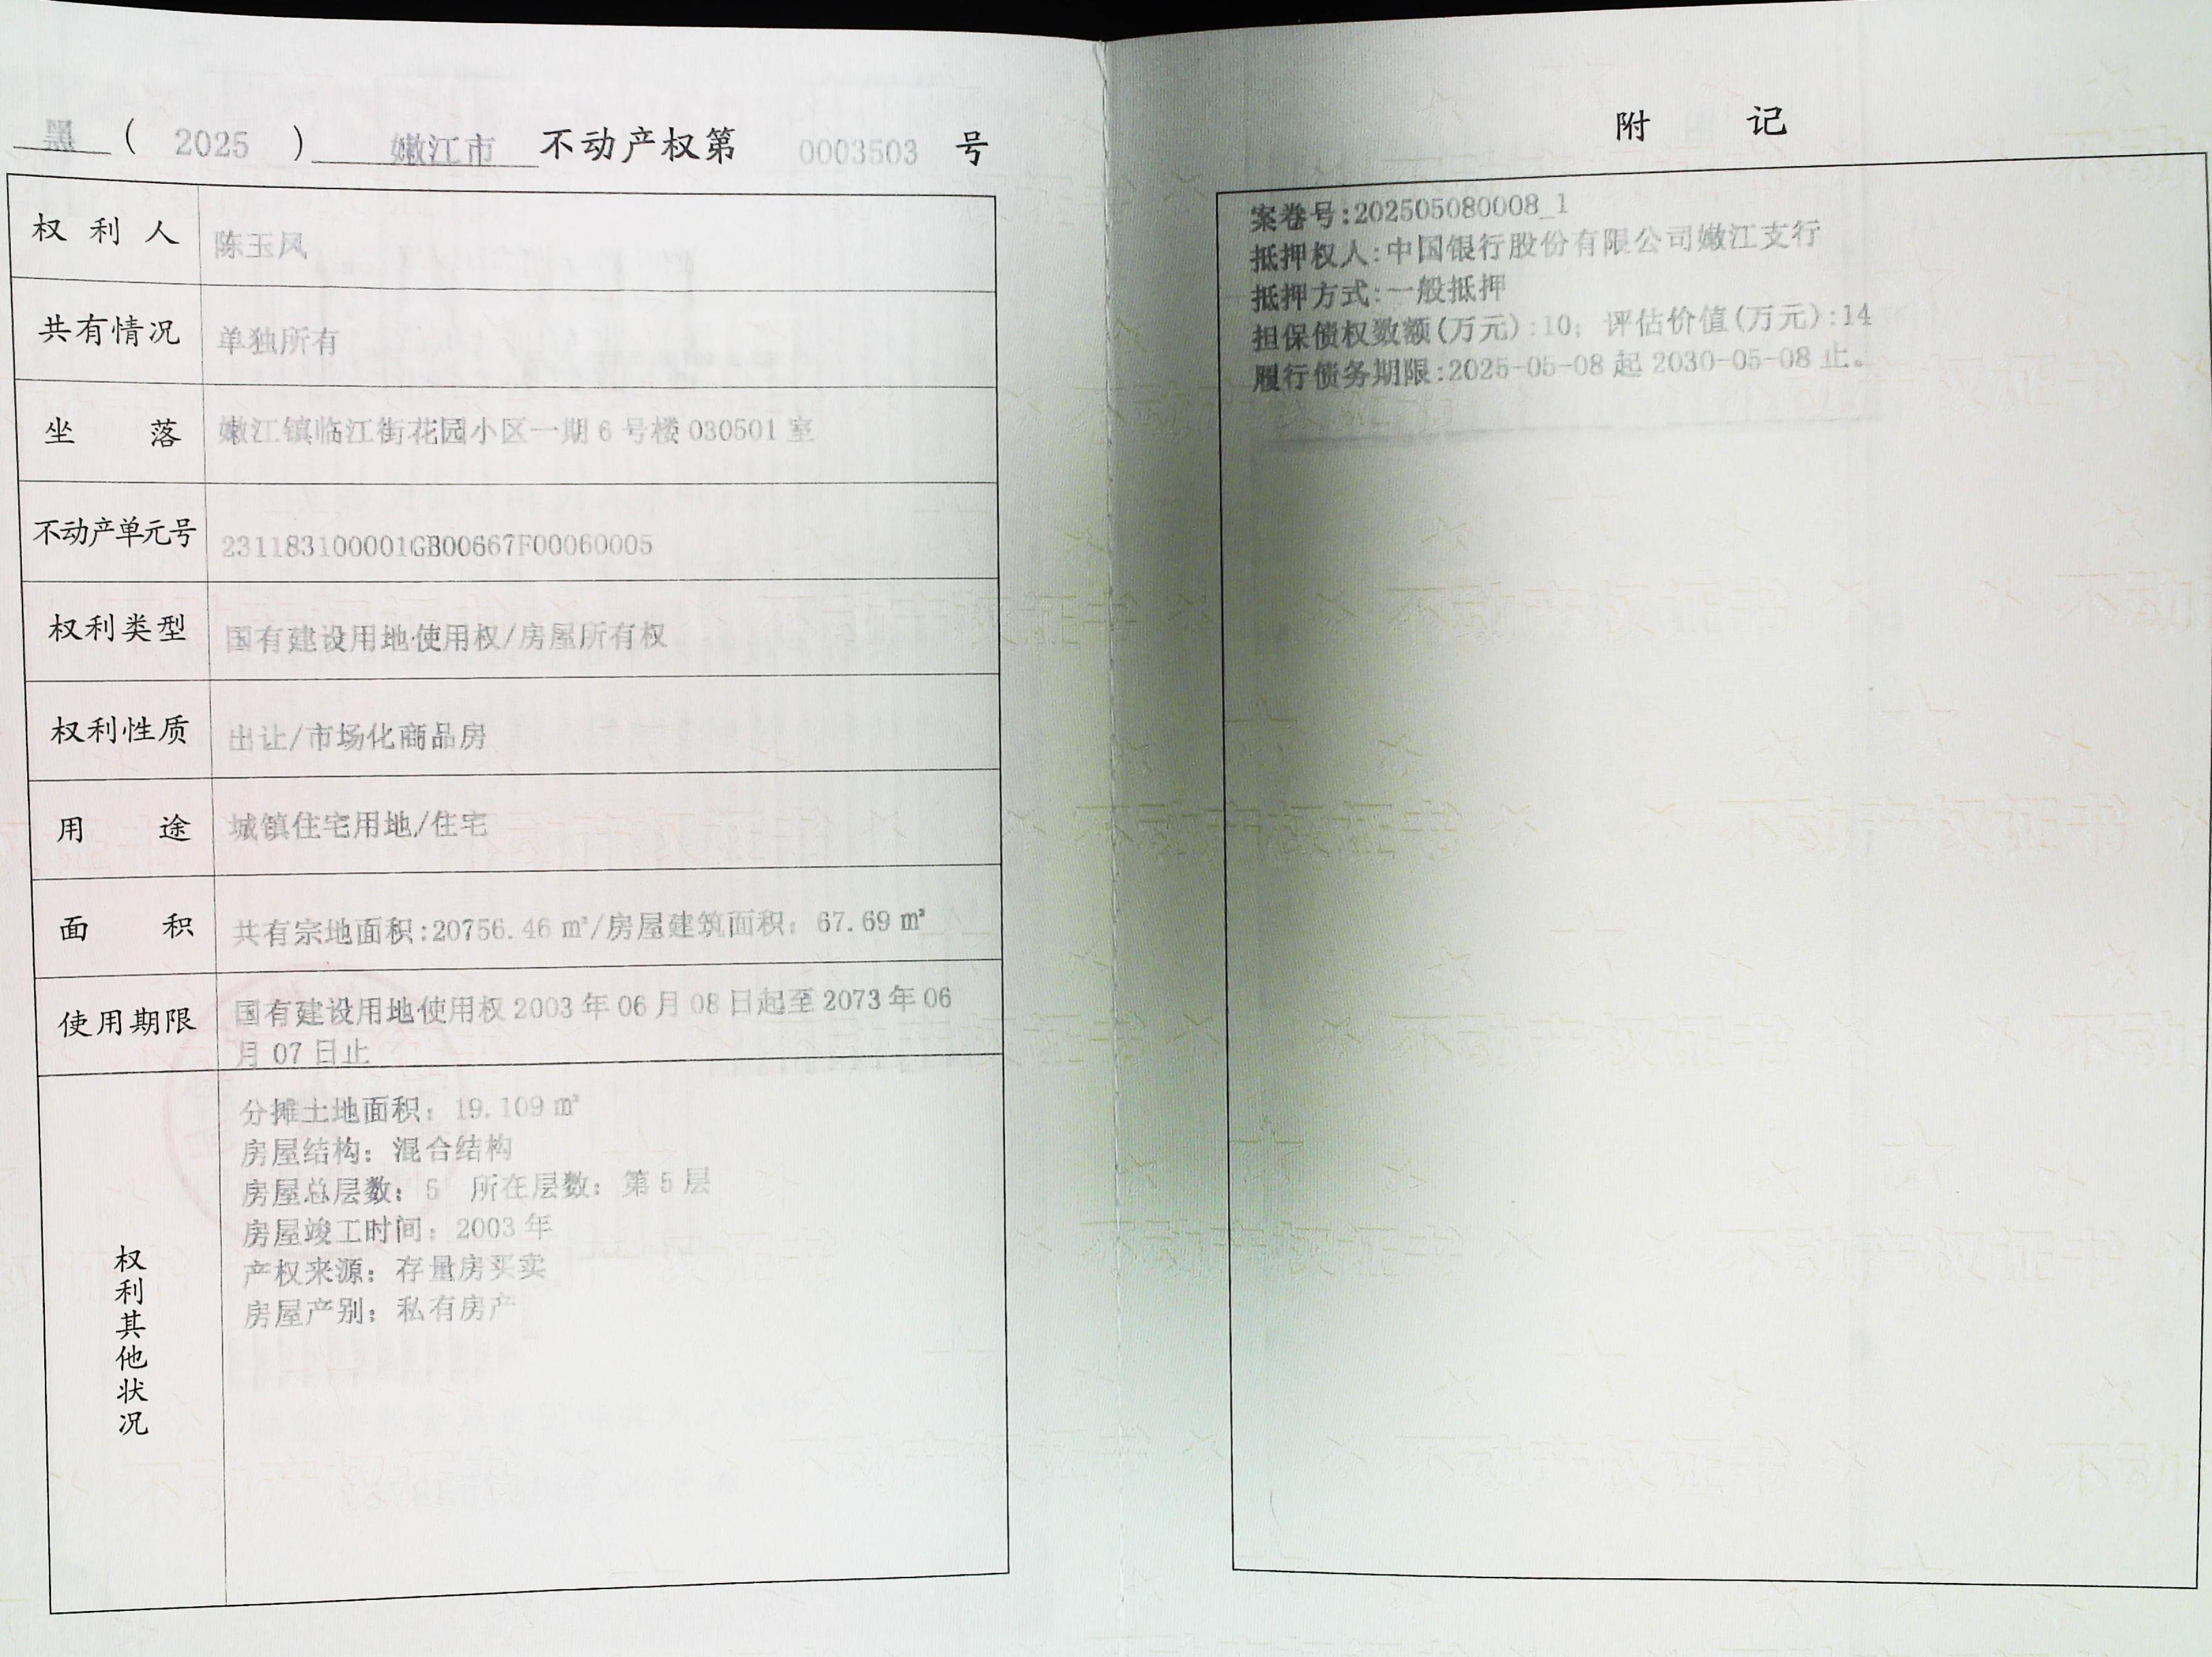 黑 ( 2025 ) 嫩江市 不动产权第 0003503 号
权利人 陈玉凤
共有情况 单独所有
坐落 嫩江镇临江街花园小区一期 6 号楼 030501 室
不动产单元号 231183100001GB00667F00060005
权利类型 国有建设用地使用权/房屋所有权
权利性质 出让/市场化商品房
用途 城镇住宅用地/住宅
面积 共有宗地面积:20756.46 ㎡/房屋建筑面积: 67.69 ㎡
使用期限 国有建设用地使用权 2003 年 06 月 08 日起至 2073 年 06
月 07 日止
权利其他状况
分摊土地面积: 19.109 ㎡
房屋结构: 混合结构
房屋总层数: 5 所在层数: 第 5 层
房屋竣工时间: 2003 年
产权来源: 存量房买卖
房屋产别: 私有房产
附 记
案卷号:202505080008_1
抵押权人:中国银行股份有限公司嫩江支行
抵押方式:一般抵押
担保债权数额(万元):10; 评估价值(万元):14
履行债务期限:2025-05-08 起 2030-05-08 止。